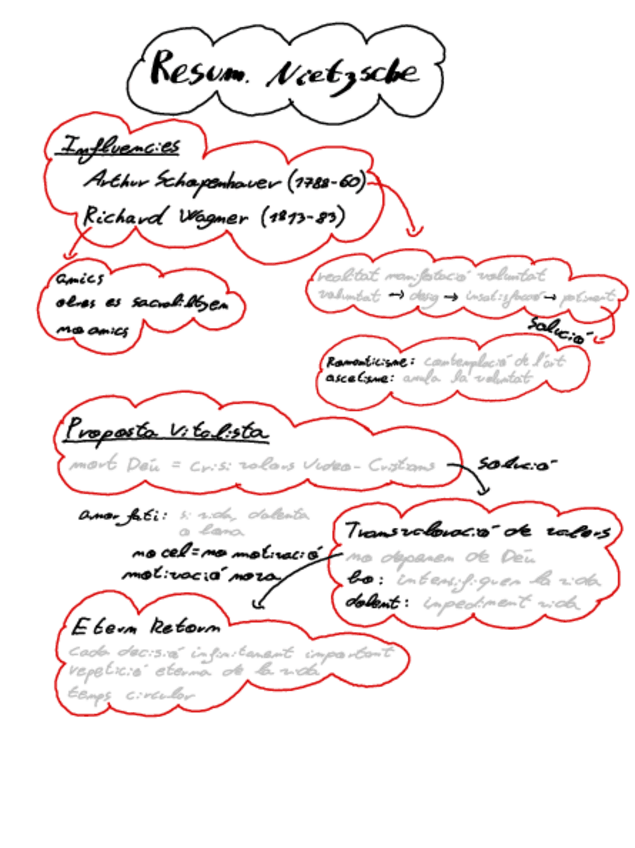 Resum. Nietzsche
Influencies
Arthur Schopenhauer (1788-60)
Richard Wagner (1813-83)
amics
obres es sacralitzen
no amics
realitat manifestació voluntat
voluntat → desig → insatisfacció → patiment
solució
Romanticisme: contemplació de l'art
ascetisme: anula la voluntat
Proposta Vitalista
mort Deu = crisi valors Judeo-Cristians
solució
amor fati: si vida dolenta
no cel = no motivació
motivació nova
Transvaloració de valors
no depenem de Déu
bo: intensifiquen la vida
dolent: impediment vida
Etern Retorn
cada decisió infinitament important
repetició eterna de la vida
temps circular